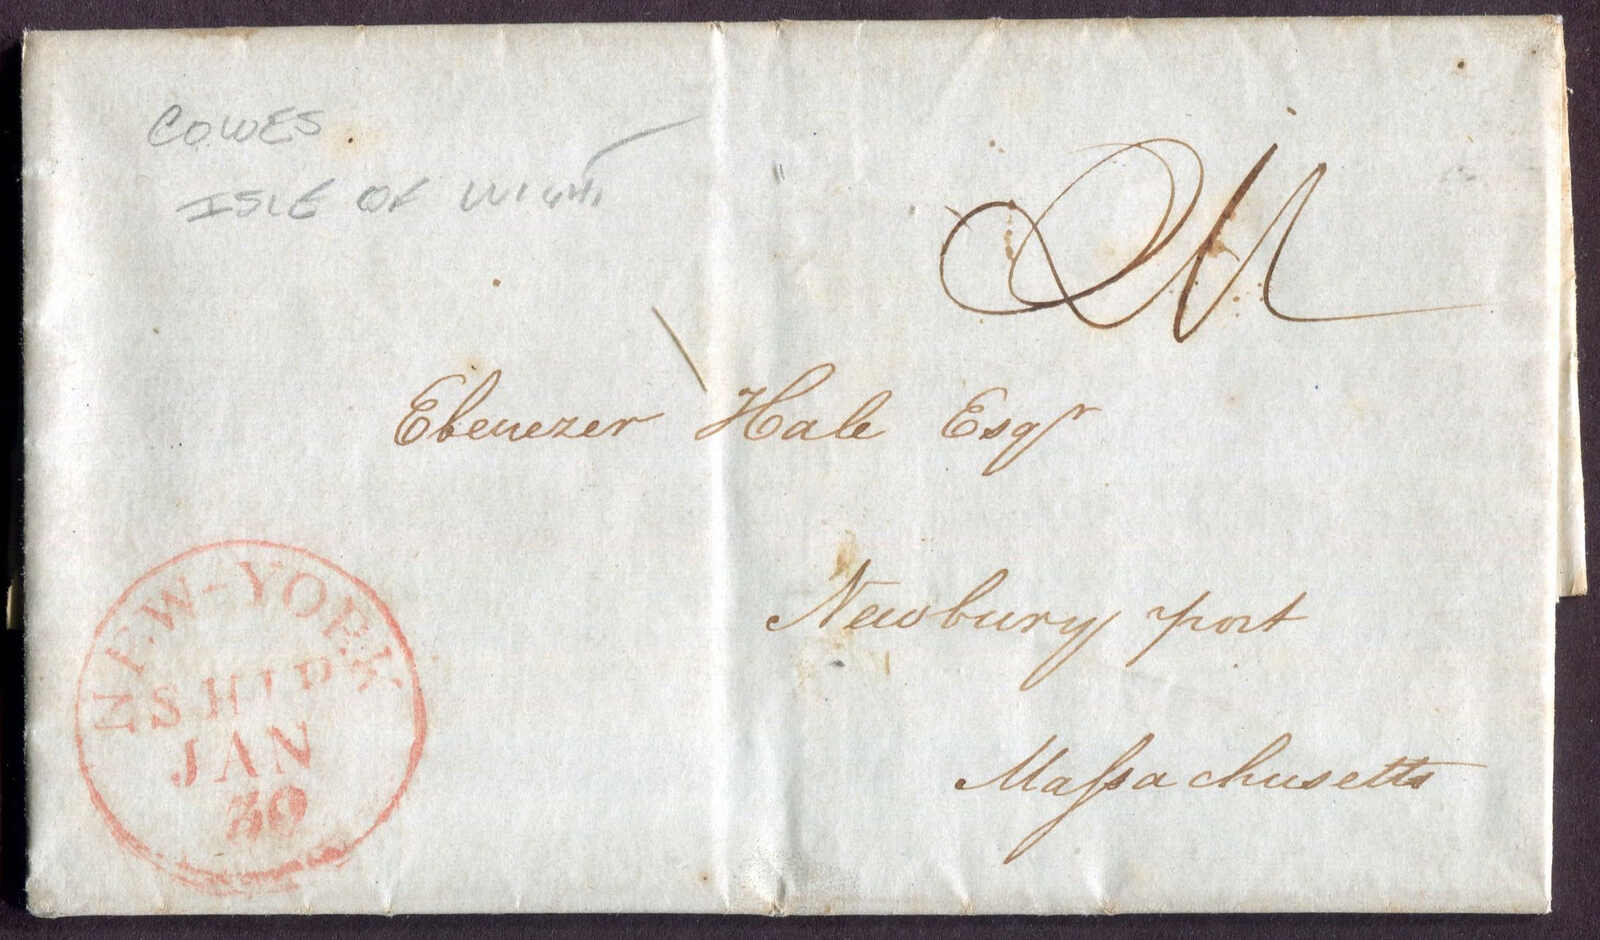 COWES
ISLE OF WIGHT
Ebenezer Hale Esqr
Newbury port
Massachusetts
NEW-YORK
SHIP
JAN
30